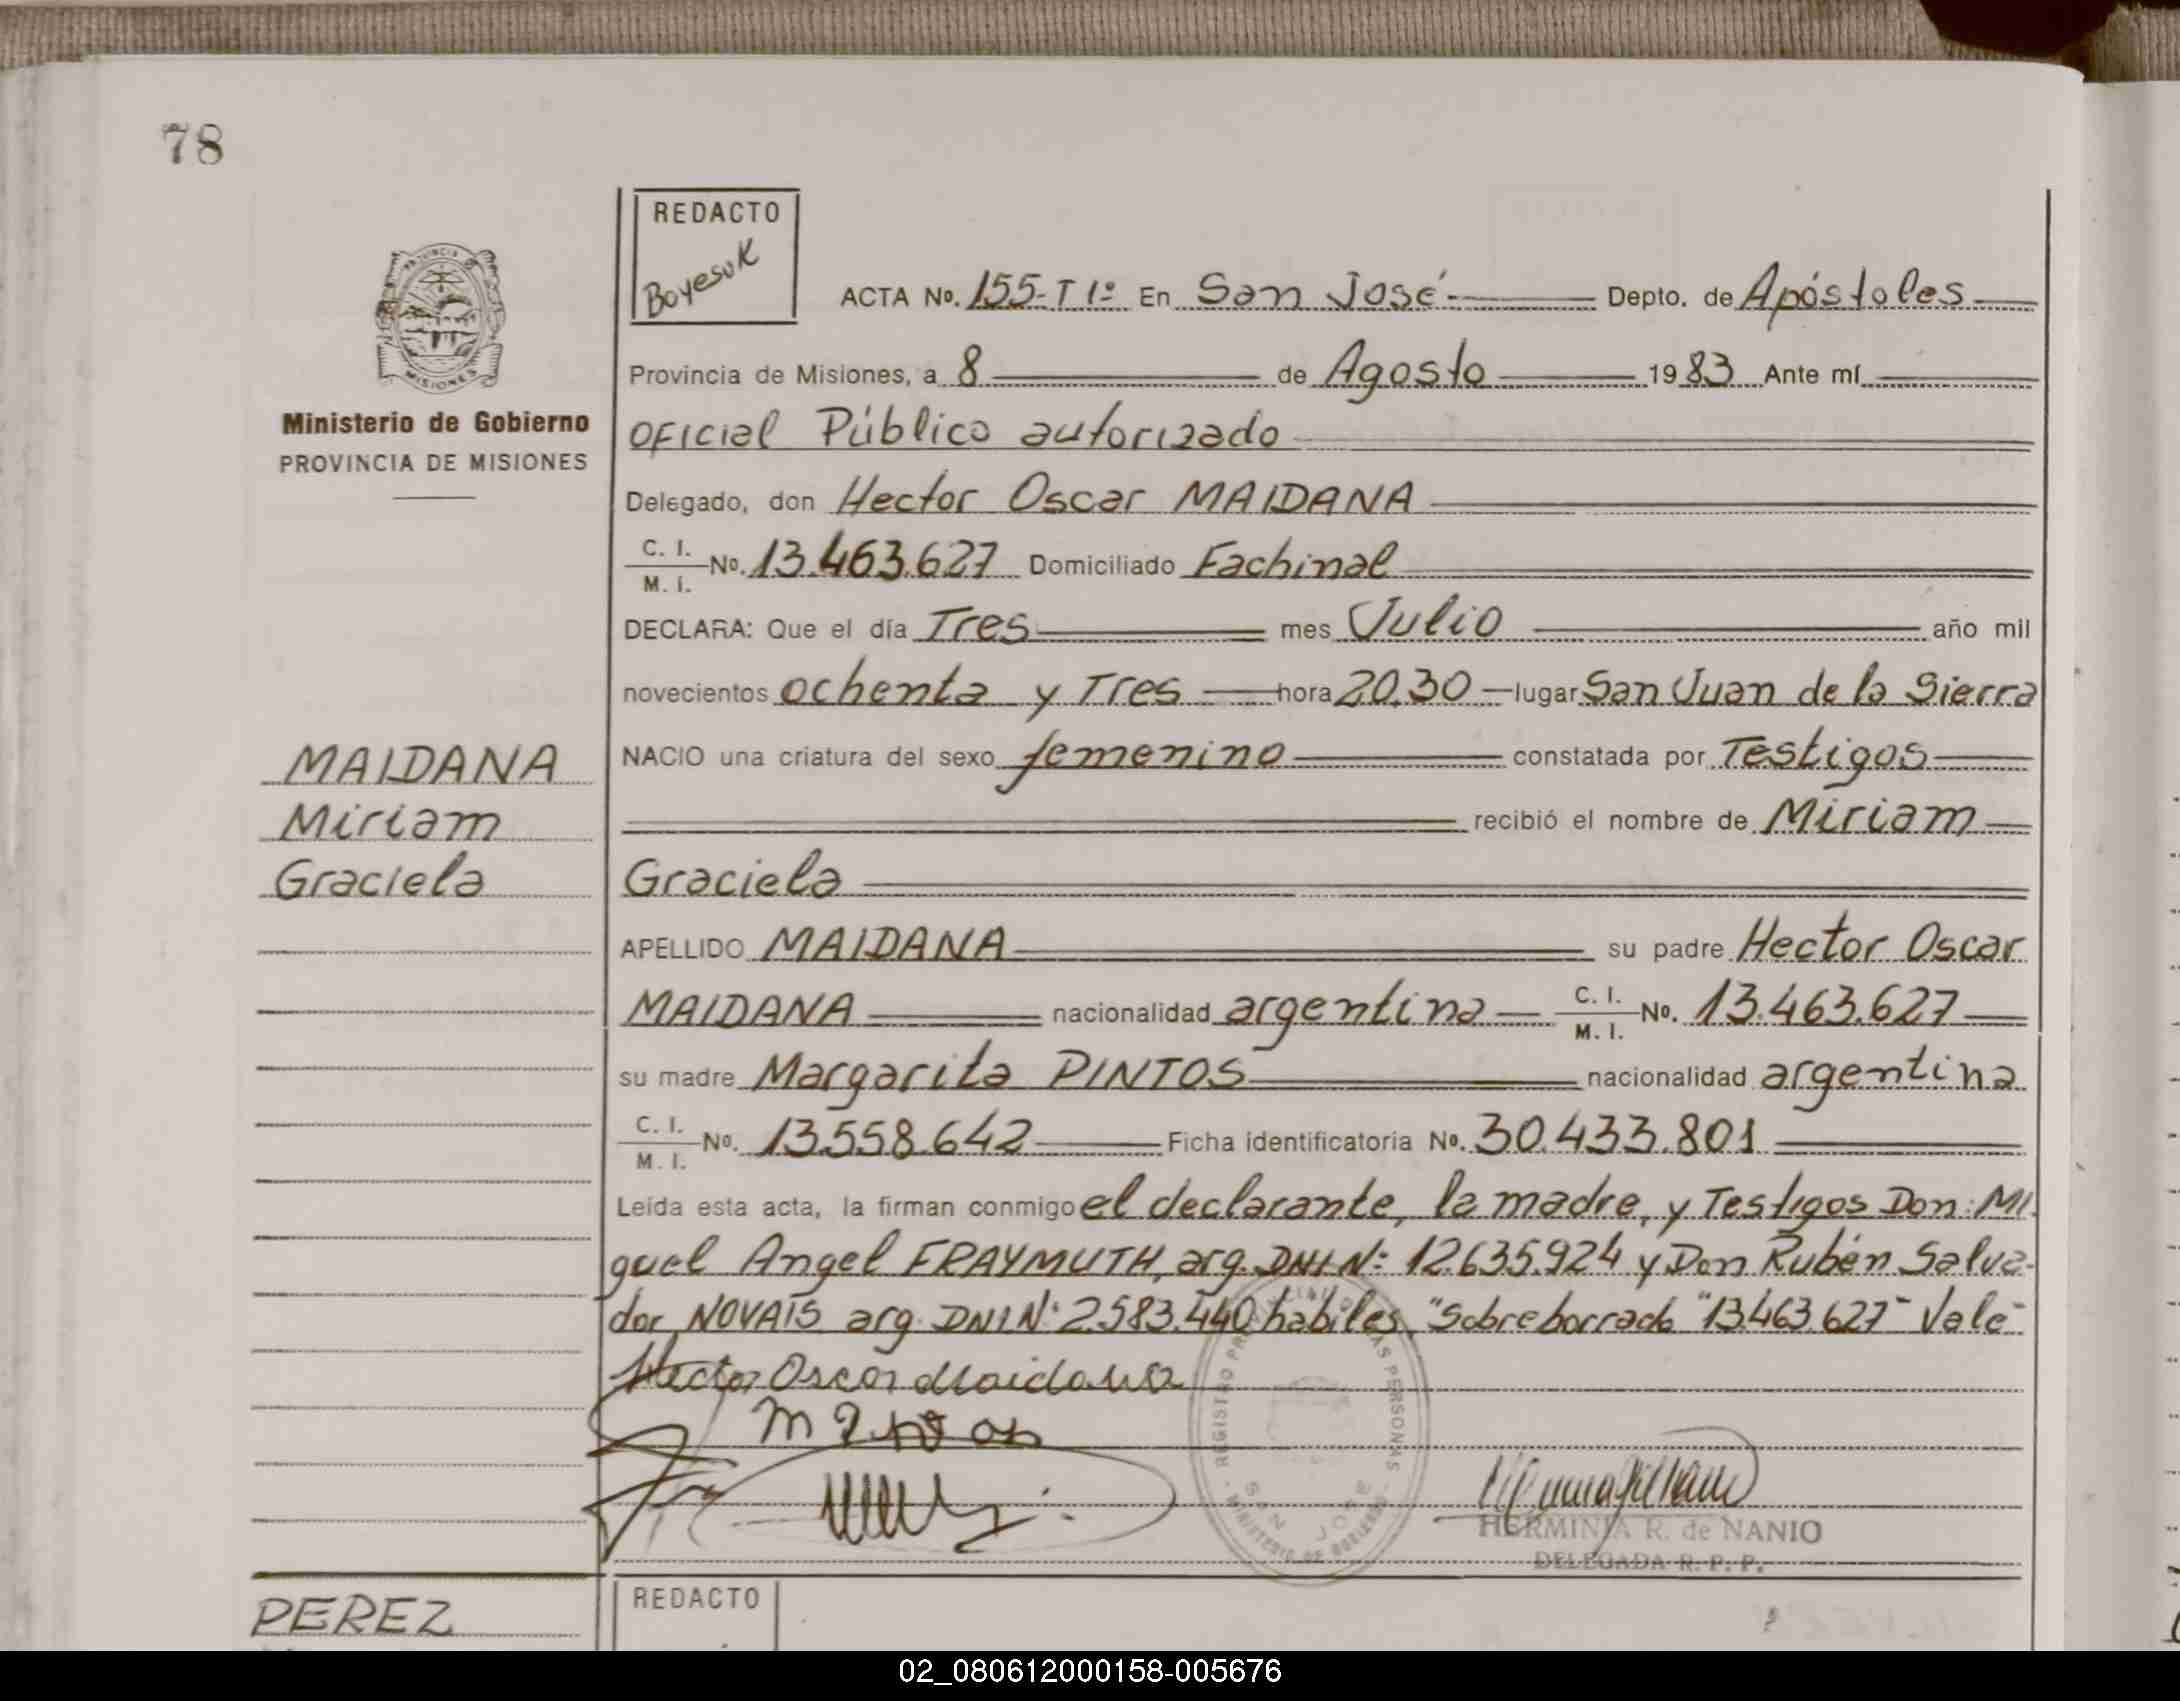 78
REDACTO
Boyesuk
ACTA No. 155-T 1º En San José Depto. de Apóstoles
Provincia de Misiones, a 8 de Agosto 1983 Ante mí
Ministerio de Gobierno
PROVINCIA DE MISIONES
Oficial Público autorizado
Delegado, don Hector Oscar MAIDANA
C. I.
M. I. No. 13.463.627 Domiciliado Fachinal
DECLARA: Que el día Tres mes Julio año mil
novecientos ochenta y Tres hora 20.30 lugar San Juan de la Sierra
MAIDANA
Miriam
Graciela
NACIO una criatura del sexo femenino constatada por Testigos
recibió el nombre de Miriam
Graciela
APELLIDO MAIDANA su padre Hector Oscar
MAIDANA nacionalidad argentina C. I. M. I. No. 13.463.627
su madre Margarita PINTOS nacionalidad argentina
C. I. M. I. No. 13.558.642 Ficha identificatoria No. 30.433.801
Leída esta acta, la firman conmigo el declarante, la madre, y Testigos Don: Mi
guel Angel FRAYMUTH, arg. DNI Nº 12.635.924 y Don Rubén Salva-
dor NOVAIS arg. DNI Nº 2.583.440 hábiles. "Sobreborrado "13.463.627" Vale"
Hector Oscar Maidana
REGISTRO PROVINCIAL DE LAS PERSONAS
SAN JOSE
MINISTERIO DE GOBIERNO
HERMINIA R. de NANIO
DELEGADA R. P. P.
PEREZ
REDACTO
02_080612000158-005676